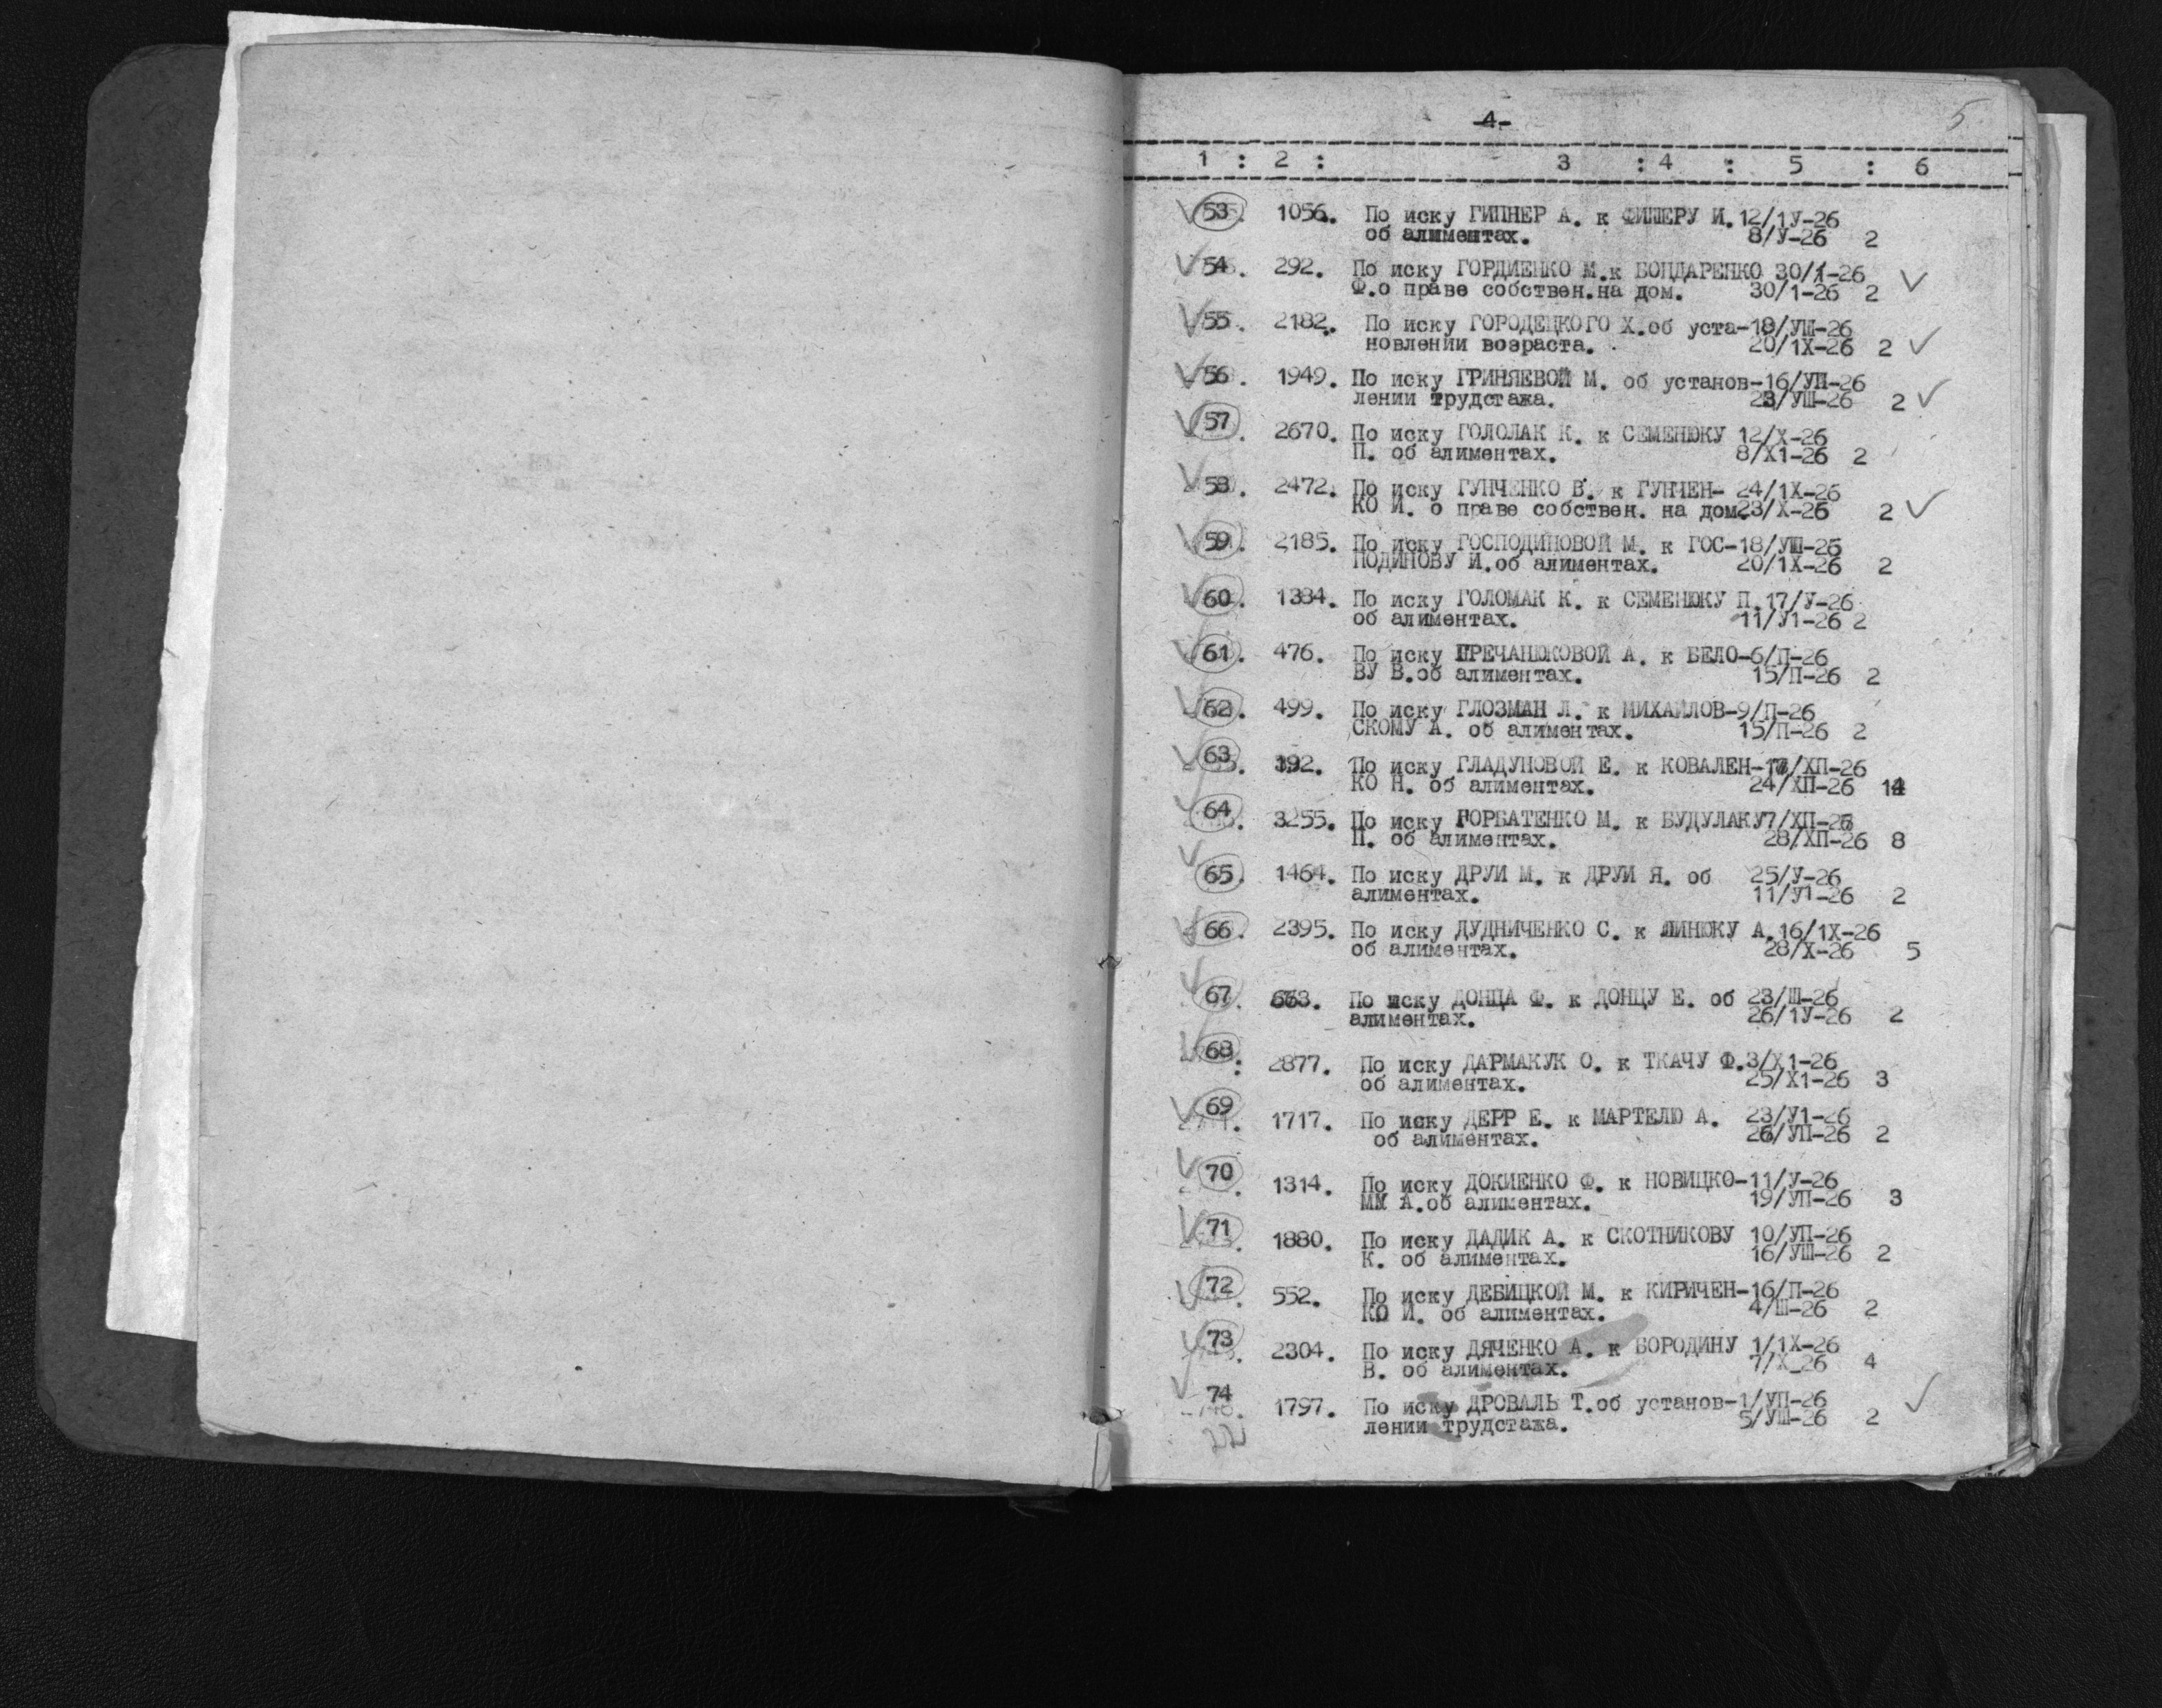 -4-
5
1 : 2 : 3 : 4 : 5 : 6
53. 1056. По иску ГИПНЕР А. к ФИШЕРУ И. 12/1У-26
об алиментах. 8/У-26 2
54. 292. По иску ГОРДИЕНКО М.к БОНДАРЕНКО 30/1-26
Ф.о праве собствен.на дом. 30/1-26 2
55. 2182. По иску ГОРОДЕЦКОГО Х.об уста-18/УШ-26
новлении возраста. 20/1Х-26 2
56. 1949. По иску ГРИНЯЕВОЙ М. об установ-16/УП-26
лении трудстажа. 23/УШ-26 2
57. 2670. По иску ГОЛОЛАК К. к СЕМЕНЮКУ 12/Х-26
П. об алиментах. 8/Х1-26 2
58. 2472. По иску ГУНЧЕНКО В. к ГУНЧЕН- 24/1Х-26
КО И. о праве собствен. на дом.23/Х-26 2
59. 2185. По иску ГОСПОДИНОВОЙ М. к ГОС-18/УШ-26
ПОДИНОВУ И.об алиментах. 20/1Х-26 2
60. 1384. По иску ГОЛОМАК К. к СЕМЕНЮКУ П.17/У-26
об алиментах. 11/У1-26 2
61. 476. По иску ГРЕЧАНЮКОВОЙ А. к БЕЛО-6/П-26
ВУ В.об алиментах. 15/П-26 2
62. 499. По иску ГЛОЗМАН Л. к МИХАЙЛОВ-9/П-26
СКОМУ А. об алиментах. 15/П-26 2
63. 392. По иску ГЛАДУНОВОЙ Е. к КОВАЛЕН-17/ХП-26
КО Н. об алиментах. 24/ХП-26 14
64. 3255. По иску ГОРБАТЕНКО М. к БУДУЛАКУ7/ХП-26
П. об алиментах. 28/ХП-26 8
65. 1464. По иску ДРУИ М. к ДРУИ Я. об 25/У-26
алиментах. 11/У1-26 2
66. 2395. По иску ДУДНИЧЕНКО С. к ЛИНЮКУ А.16/1Х-26
об алиментах. 28/Х-26 5
67. 663. По иску ДОНЦА Ф. к ДОНЦУ Е. об 23/Ш-26
алиментах. 26/1У-26 2
68. 2877. По иску ДАРМАКУК О. к ТКАЧУ Ф.3/Х1-26
об алиментах. 25/Х1-26 3
69. 1717. По иску ДЕРР Е. к МАРТЕЛЮ А. 23/У1-26
об алиментах. 26/УП-26 2
70. 1314. По иску ДОКИЕНКО Ф. к НОВИЦКО-11/У-26
МУ А.об алиментах. 19/УП-26 3
71. 1880. По иску ДАДИК А. к СКОТНИКОВУ 10/УП-26
К. об алиментах. 16/УШ-26 2
72. 552. По иску ДЕБИЦКОЙ М. к КИРИЧЕН-16/П-26
КО И. об алиментах. 4/Ш-26 2
73. 2304. По иску ДЯЧЕНКО А. к БОРОДИНУ 1/1Х-26
В. об алиментах. 7/Х_26 4
74 1797. По иску ДРОВАЛЬ Т.об установ-1/УП-26
лении трудстажа. 5/УШ-26 2